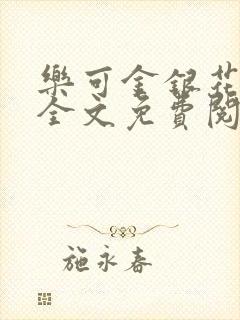 樂可金銀花
全文免費閱
施永春